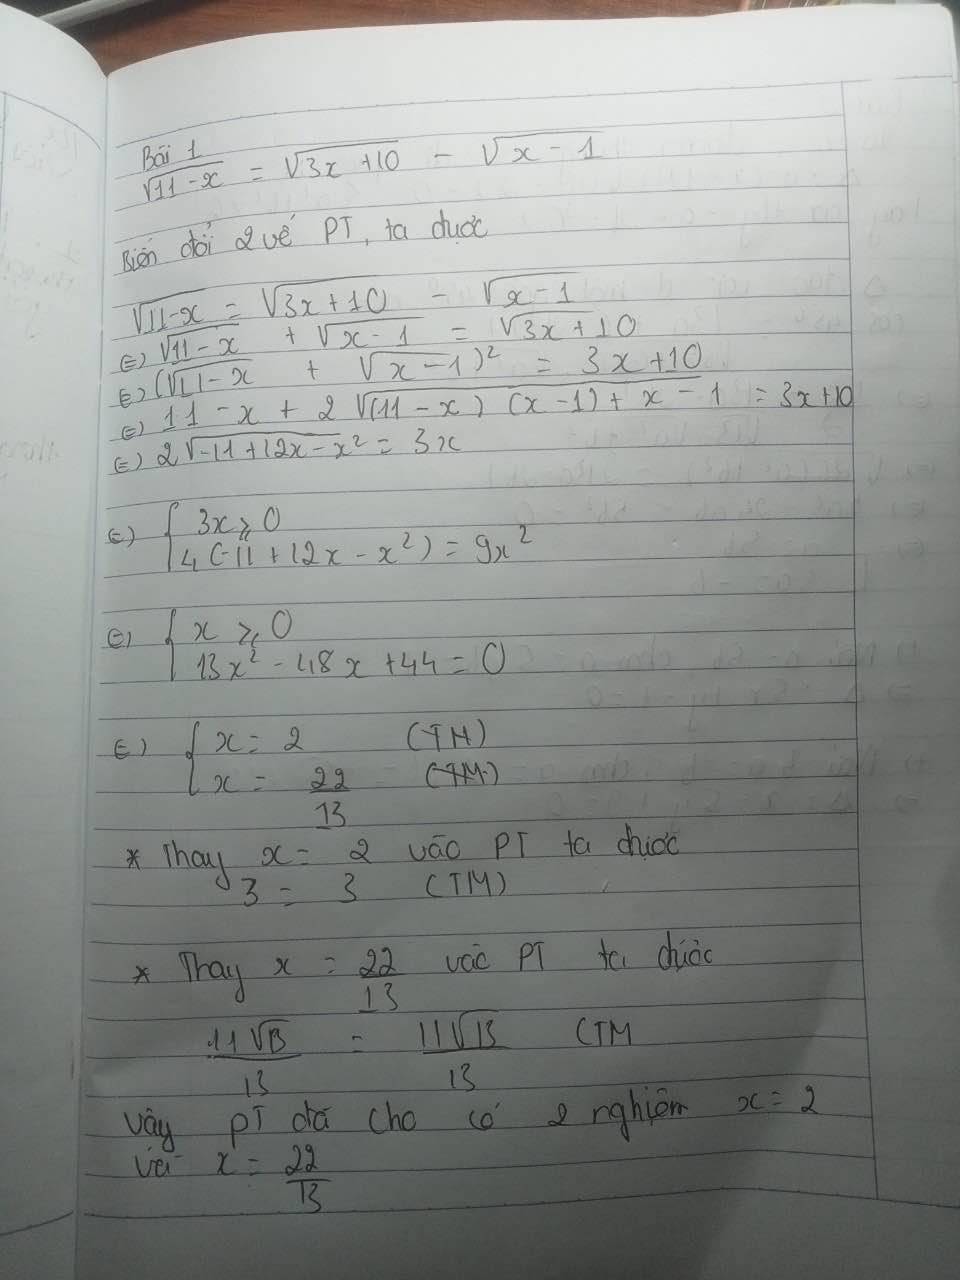 Bài 1
√11-x = √3x+10 - √x-1
Biến đổi 2 vế PT, ta được
√11-x = √3x+10 - √x-1
(=) √11-x + √x-1 = √3x+10
(=) (√11-x + √x-1)² = 3x+10
(=) 11-x + 2√(11-x)(x-1) + x-1 = 3x+10
(=) 2√-11+12x-x² = 3x
(=) { 3x ≥ 0
4(-11+12x-x²) = 9x²
(=) { x ≥ 0
13x² - 48x + 44 = 0
(=) { x = 2 (TM)
x = 22/13 (TM)
* Thay x = 2 vào PT ta được
3 = 3 (TM)
* Thay x = 22/13 vào PT ta được
11√13/13 = 11√13/13 (TM
Vậy PT đã cho có 2 nghiệm x = 2
và x = 22/13